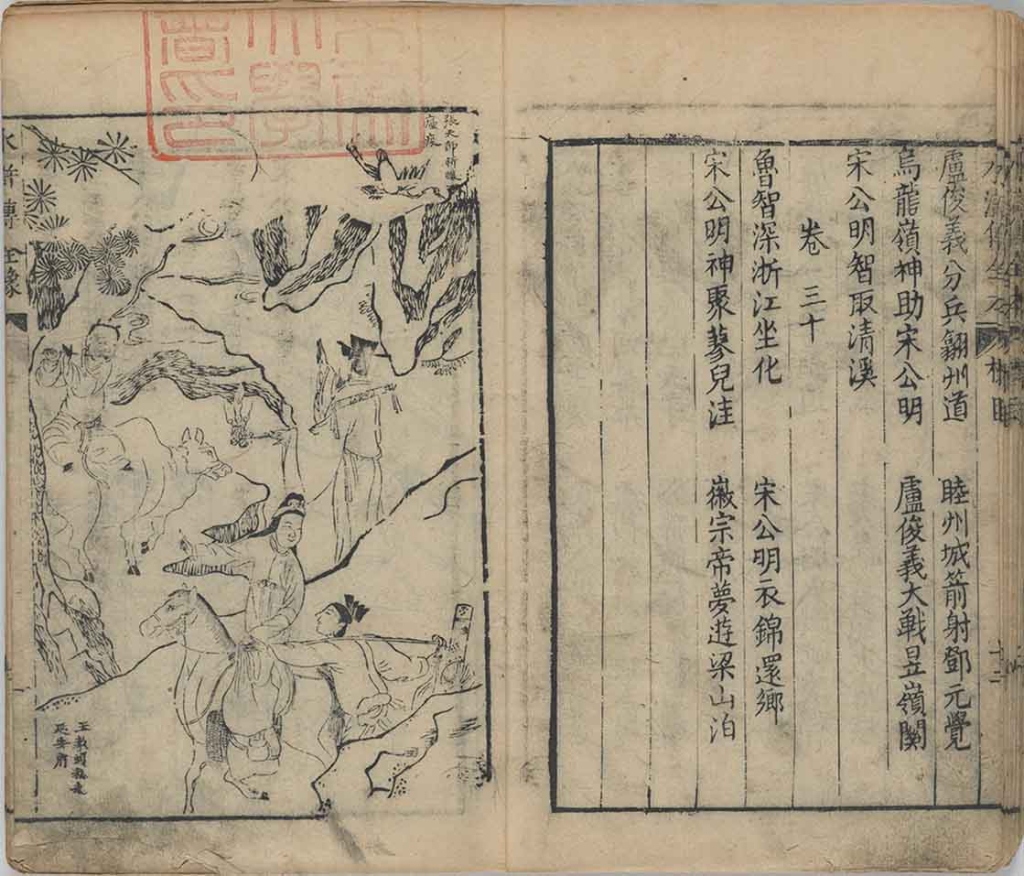 盧俊義分兵歙州道 睦州城箭射鄧元覺
烏龍嶺神助宋公明 盧俊義大戰昱嶺關
宋公明智取清溪
卷三十
魯智深浙江坐化 宋公明衣錦還鄉
宋公明神聚蓼兒洼 徽宗帝夢遊梁山泊
張天師祈禳瘟疫
水滸傳全像
王教頭私走
延安府